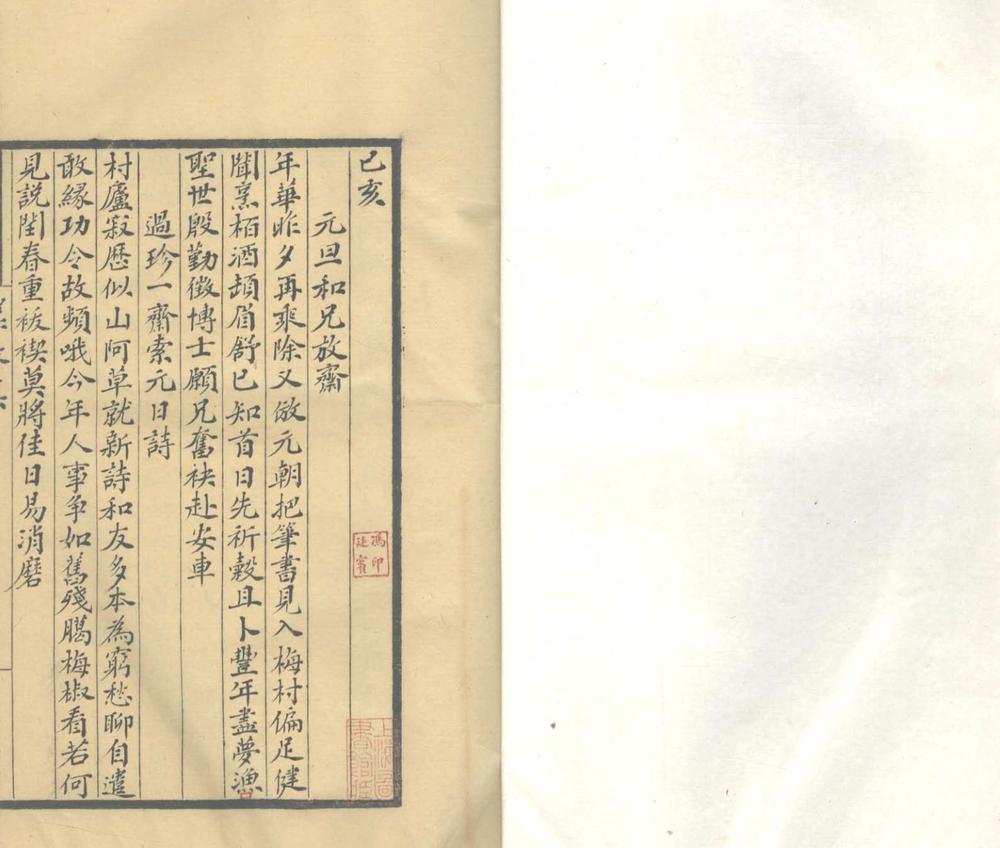 己亥
元旦和兄放齋
年華昨夕再乘除又倣元朝把筆書見入梅村偏足健
聞烹栢酒頓眉舒已知首日先祈穀且卜豐年盡夢漁
聖世殷勤徵博士願兄奮袂赴安車
過珍一齋索元日詩
村廬寂歷似山阿草就新詩和友多本為窮愁聊自遣
敢緣功令故頻哦今年人事爭如舊殘臈梅椒看若何
見説閏春重祓禊莫將佳日易消磨
馮印
廷賓
上海圖
書館藏